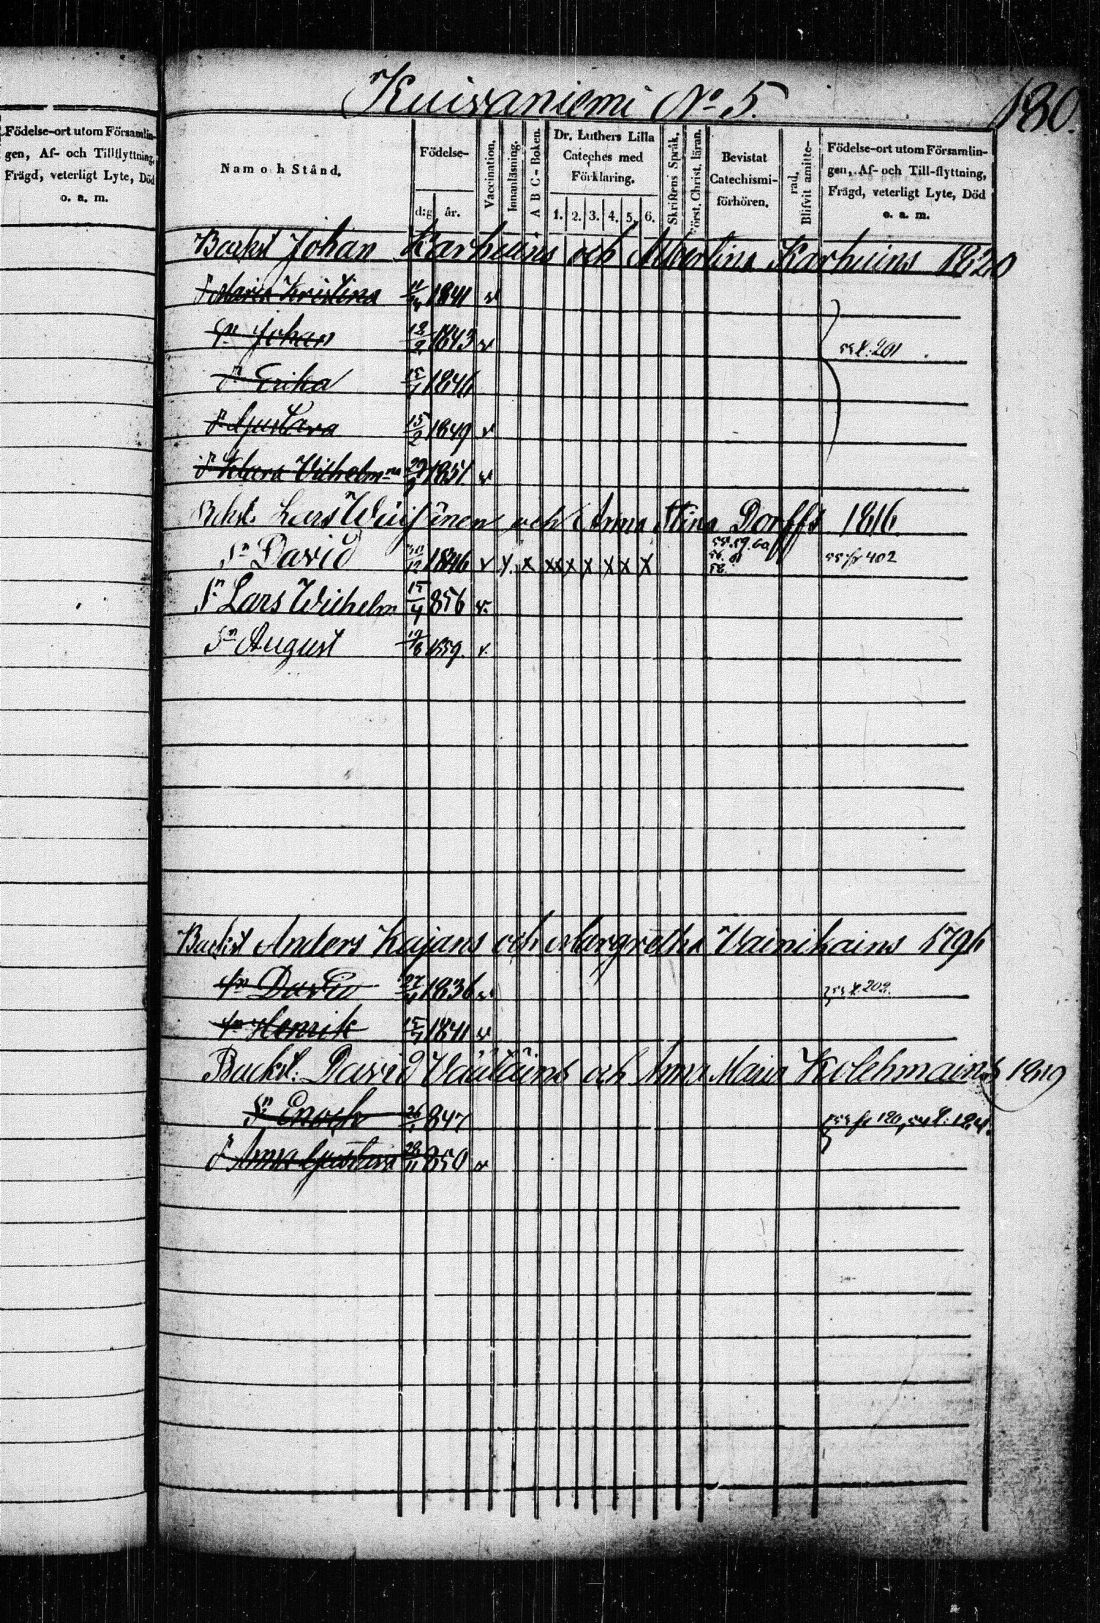 Kuivaniemi No 5.
180.
Födelse-ort utom Försam̄lin-
gen, Af- och Tillflyttning,
Frägd, veterligt Lyte, Död
o. a. m.
Namn och Stånd.
Födelse-
dig år.
Vaccination.
Innanläsning.
A B C - Boken.
Dr. Luthers Lilla
Cateches med
Förklaring.
1. 2. 3. 4. 5. 6.
Skriftens Språk.
Först. Christ. läran.
Bevistat
Catechismi-
förhören.
Blifvit amitte-
rad.
Födelse-ort utom Församlin-
gen, Af- och Till-flyttning,
Frägd, veterligt Lyte, Död
o. a. m.
Backst Johan Karhuins och Albertina Karhuins 1820
Maria Kristina 1841 v
Sn Johan 18/2 1843 v 55 k. 201
Erika 1846
Gustava 15/2 1849 v
Klara Vilhelmna 1851 v
Bckst. Lars och Anna Stina Dorffs 1816.
Sn David 30/12 1846 v x x xx x x x x x 58. 59. 60. 402
Sn Lars Wilhelm 15/4 856 v
Sn August 1859. v
Backst Anders Kajans och Margretha Vainikains 1796
Sn David 1836 v 202.
Sn Henrik 1841 v
Backst. David Väätäins och Anna Maria Kolehmains 1819
Sn Enoch 847 120, 54
Anna Gustava 28/11 850 v